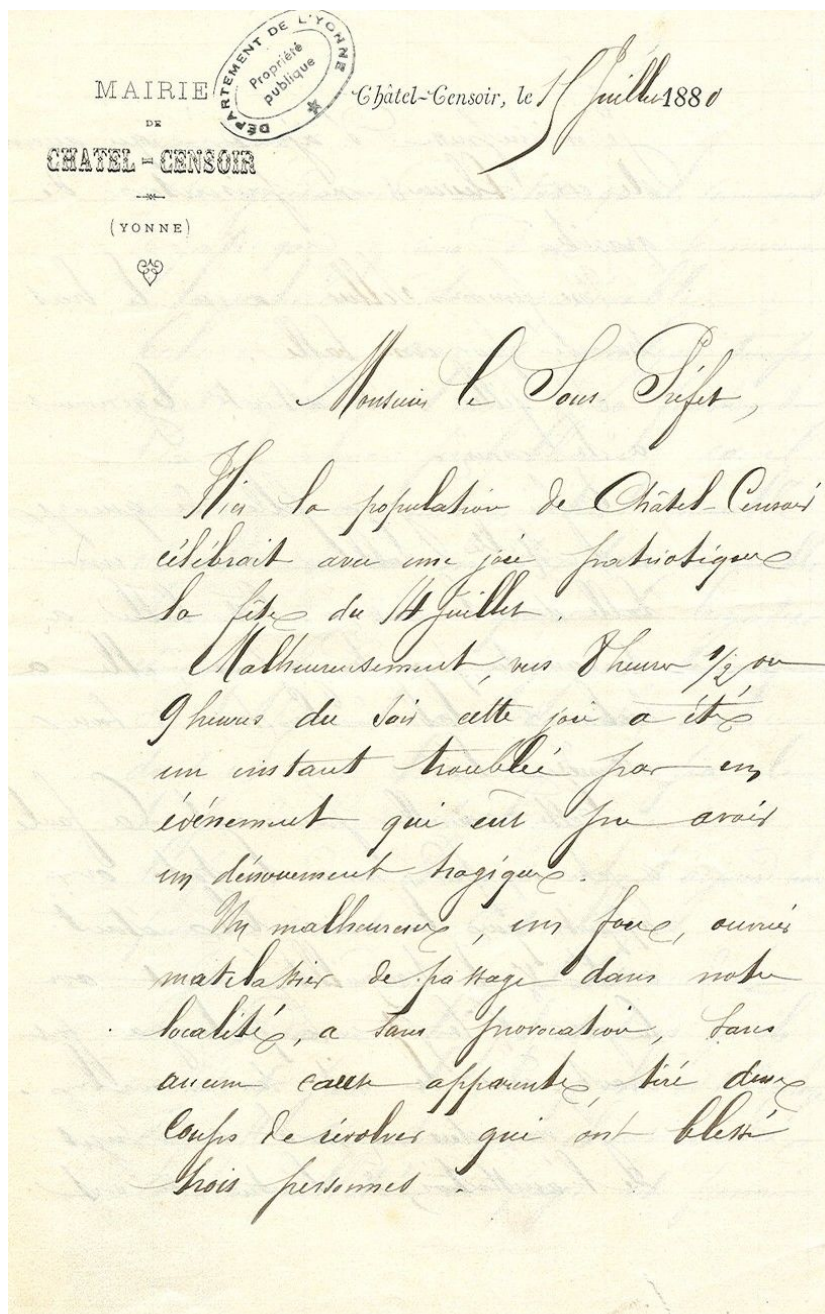 MAIRIE
DE
CHATEL-CENSOIR
(YONNE)
DÉPARTEMENT DE L'YONNE
Propriété
publique
Châtel-Censoir, le 15 Juillet 1880
Monsieur le Sous-Préfet,
Hier la population de Châtel-Censoir
célébrait avec une joie patriotique
la fête du 14 juillet.
Malheureusement, vers 8 heures 1/2 ou
9 heures du soir cette joie a été
un instant troublée par un
événement qui eut pu avoir
un dénouement tragique.
Un malheureux, un fou, ouvrier
matelassier de passage dans notre
localité, a sans provocation, sans
aucune cause apparente, tiré deux
coups de révolver qui ont blessé
trois personnes.